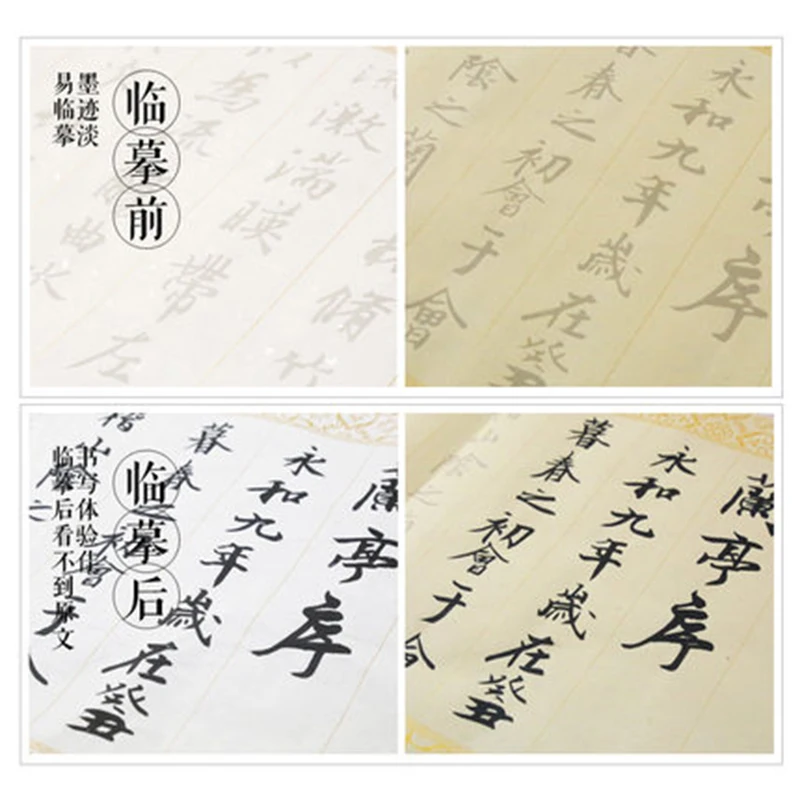 临摹前
墨迹淡
易临摹
脩竹
激湍暎帶左
以為流
曲水
序
永和九年歲在癸丑
春之初會于會
陰之蘭
临摹后
书写体验佳
临摹后看不到原文
蘭亭序
永和九年歲在癸丑
暮春
蘭亭序
永和九年歲在癸丑
暮春之初會于會